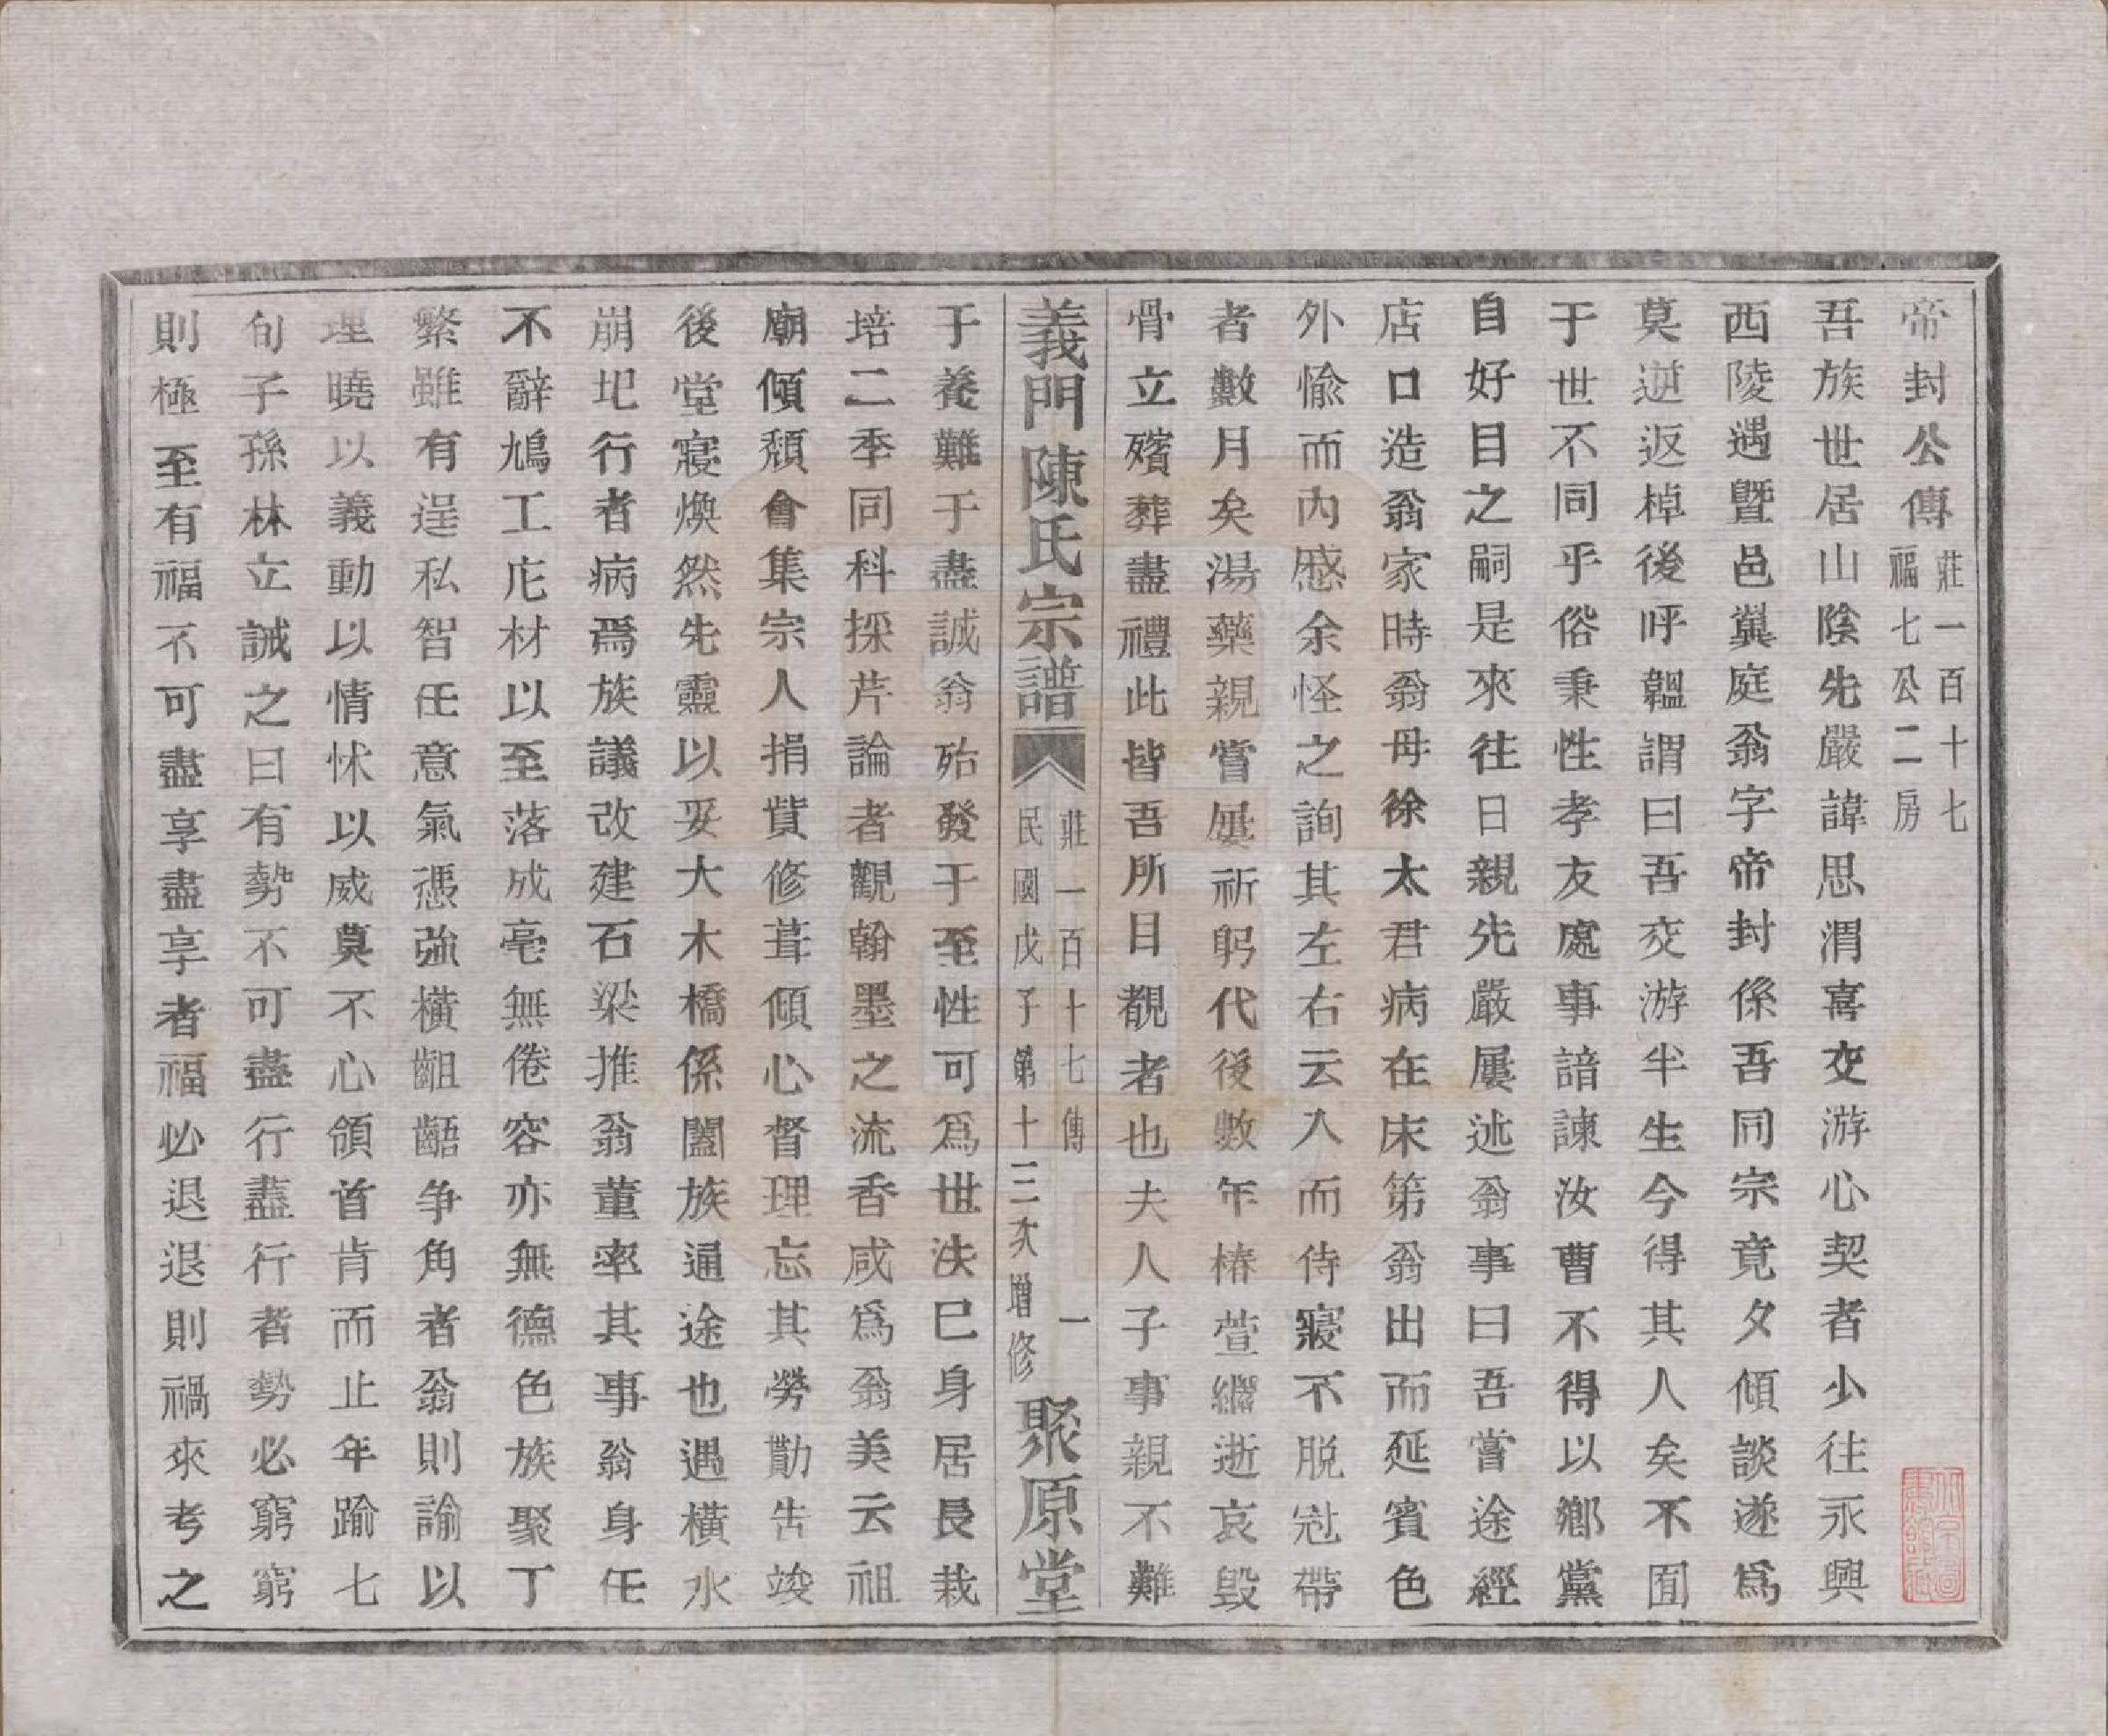 帝封公傳 莊一百十七 福七公二房
吾族世居山陰先嚴諱思渭喜交游心契者少往永興
西陵遇暨邑巽庭翁字帝封係吾同宗竟夕傾談遂爲
莫逆返棹後呼韞謂曰吾交游半生今得其人矣不囿
于世不同乎俗秉性孝友處事諳諫汝曹不得以鄉黨
自好目之嗣是來往日親先嚴屢述翁事曰吾嘗途經
店口造翁家時翁母徐太君病在床第翁出而延賓色
外愉而內慼余怪之詢其左右云入而侍寢不脱冠帶
者數月矣湯藥親嘗屢祈躬代後數年椿萱繼逝哀毀
骨立殯葬盡禮此皆吾所目覩者也夫人子事親不難
義門陳氏宗譜 莊一百十七傳 一 民國戊子第十三次增修 聚原堂
于養難于盡誠翁殆發于至性可爲世法巳身居長栽
培二季同科採芹論者觀翰墨之流香咸爲翁美云祖
廟傾頹會集宗人捐貲修葺傾心督理忘其勞勩吿竣
後堂寢煥然先靈以妥大木橋係闔族通途也遇橫水
崩圯行者病焉族議改建石梁推翁董率其事翁身任
不辭鳩工庀材以至落成毫無倦容亦無德色族聚丁
繁雖有逞私智任意氣憑強橫齟齬争角者翁則諭以
理曉以義動以情怵以威莫不心領首肯而止年踰七
旬子孫林立誡之曰有勢不可盡行盡行者勢必窮窮
則極至有福不可盡享盡享者福必退退則禍來考之